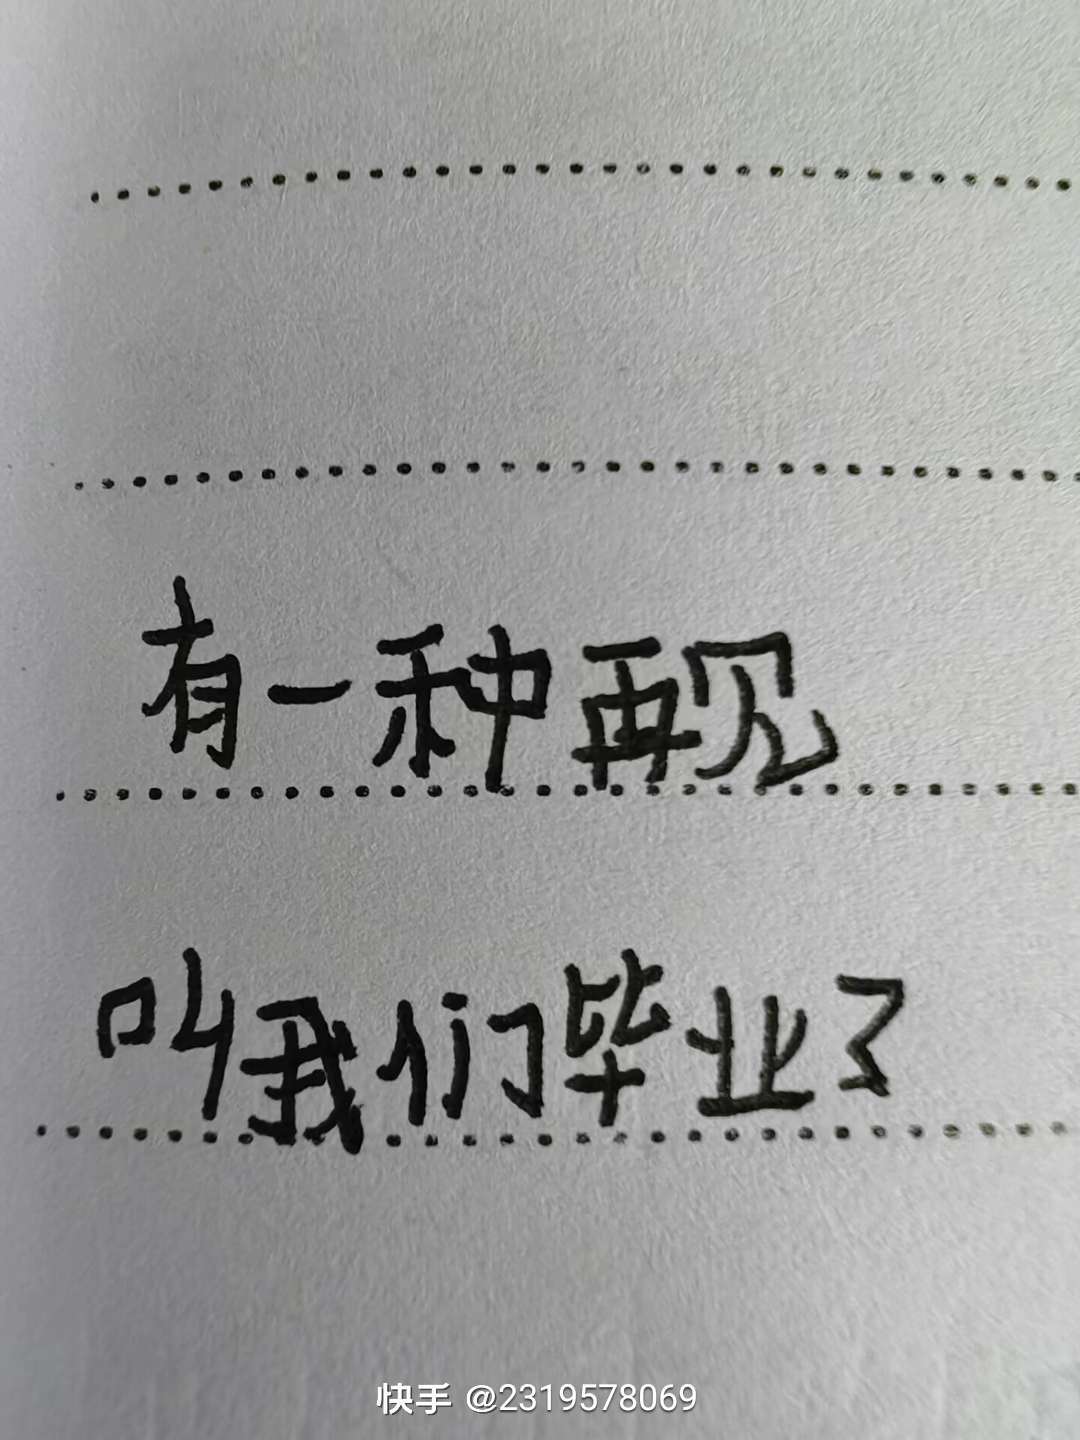 有一种再见
叫我们毕业了
快手 @2319578069